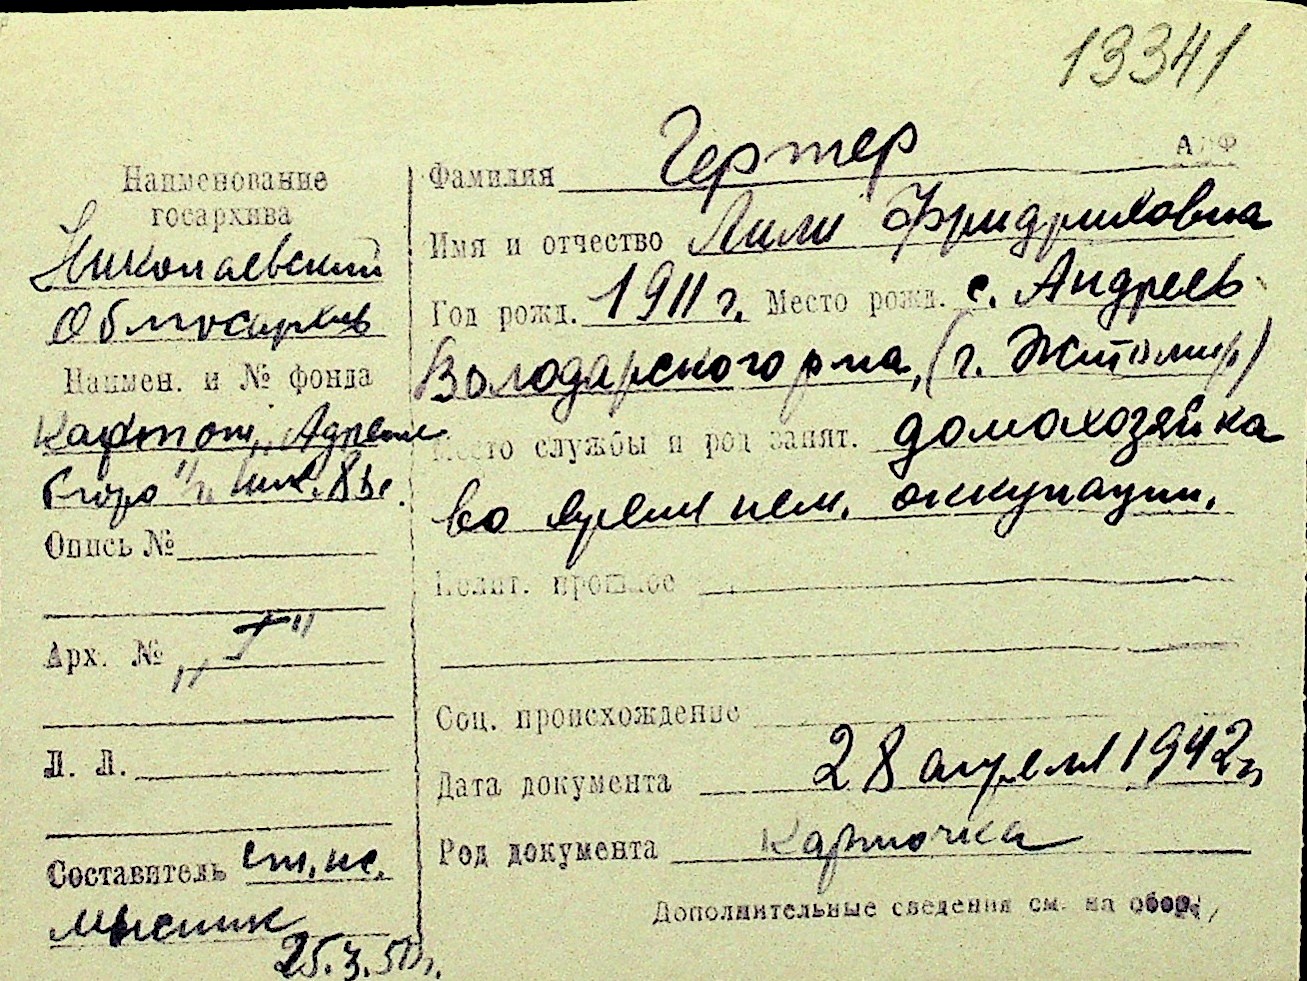 13341
Наименование
госархива
Николаевский
Облгосархив
Наимен. и № фонда
Картот. "Адресн.
бюро"
Опись №
Арх. № "Г"
Л. Л.
Составитель ст. нс.
25.3.50 г.
Фамилия Гертер
Имя и отчество Лили Фридриховна
Год рожд. 1911 г. Место рожд. с. Андреев
Володарского р-на, (г. Житомир)
Место службы и род занят. домохозяйка
во время нем. оккупации.
Полит. прошлое
Соц. происхождение
Дата документа 28 апреля 1942 г.
Род документа карточка
Дополнительные сведения см. на обор.